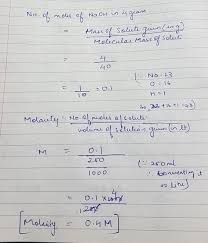 No. of moles of NaOH in 4 gram
= Mass of Solute given (in g)
Molecular Mass of Solute
= 4
40
= 1 = 0.1
10
Na - 23
O - 16
H = 1
Molarity = No. of Moles of solute
volume of solution given (in lt)
M = 0.1
250
1000
(∵ 250 ml
converting it
= 0.1 × 1000 4
250
Molarity = 0.4 M